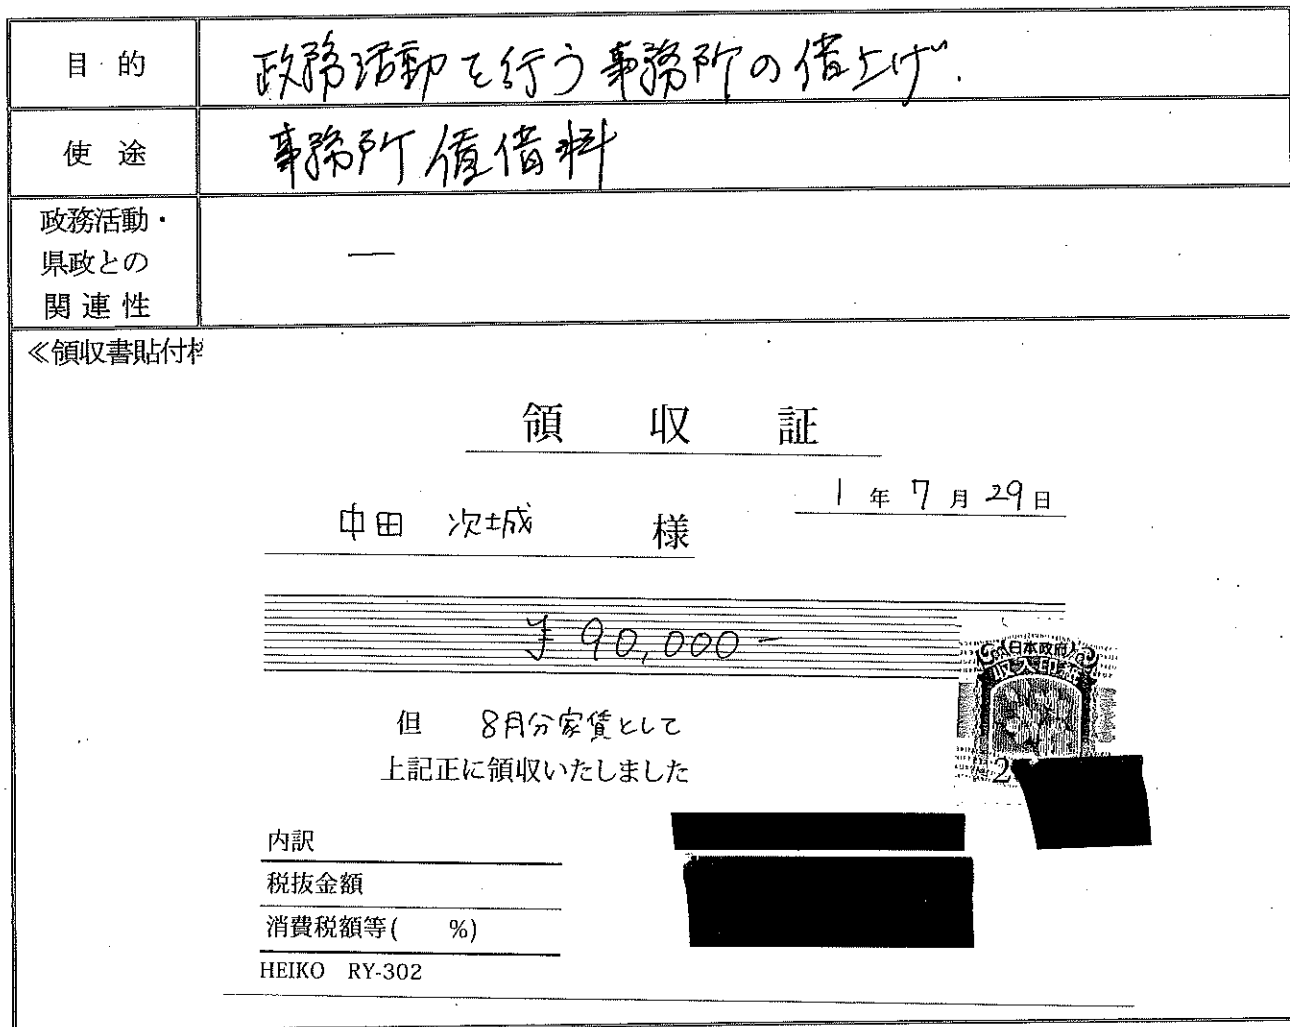 目的 政務活動を行う事務所の借上げ.
使途 事務所賃借料
政務活動・
県政との
関連性
—
≪領収書貼付枠
領収証
1年7月29日
中田 次城 様
¥90,000-
日本政府
収入印紙
2
但 8月分家賃として
上記正に領収いたしました
内訳
税抜金額
消費税額等( %)
HEIKO RY-302